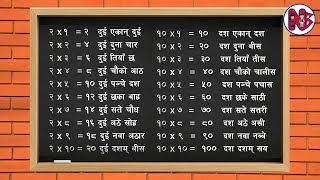 २ x १ = २ दुई एकान् दुई
२ x २ = ४ दुई दुना चार
२ x ३ = ६ दुई तियाँ छ
२ x ४ = ८ दुई चोको आठ
२ x ५ = १० दुई पन्चे दश
२ x ६ = १२ दुई छका बाह्र
२ x ७ = १४ दुई सते चौध
२ x ८ = १६ दुई अठे सोह्र
२ x ९ = १८ दुई नबा अठार
२ x १० = २० दुई दशम् बीस
१० x १ = १० दश एकान् दश
१० x २ = २० दश दुना बीस
१० x ३ = ३० दश तियाँ तीस
१० x ४ = ४० दश चोको चालीस
१० x ५ = ५० दश पन्चे पचास
१० x ६ = ६० दश छके साठी
१० x ७ = ७० दश सते सत्तरी
१० x ८ = ८० दश अठे असी
१० x ९ = ९० दश नबा नब्बे
१० x १० = १०० दश दशम् सय